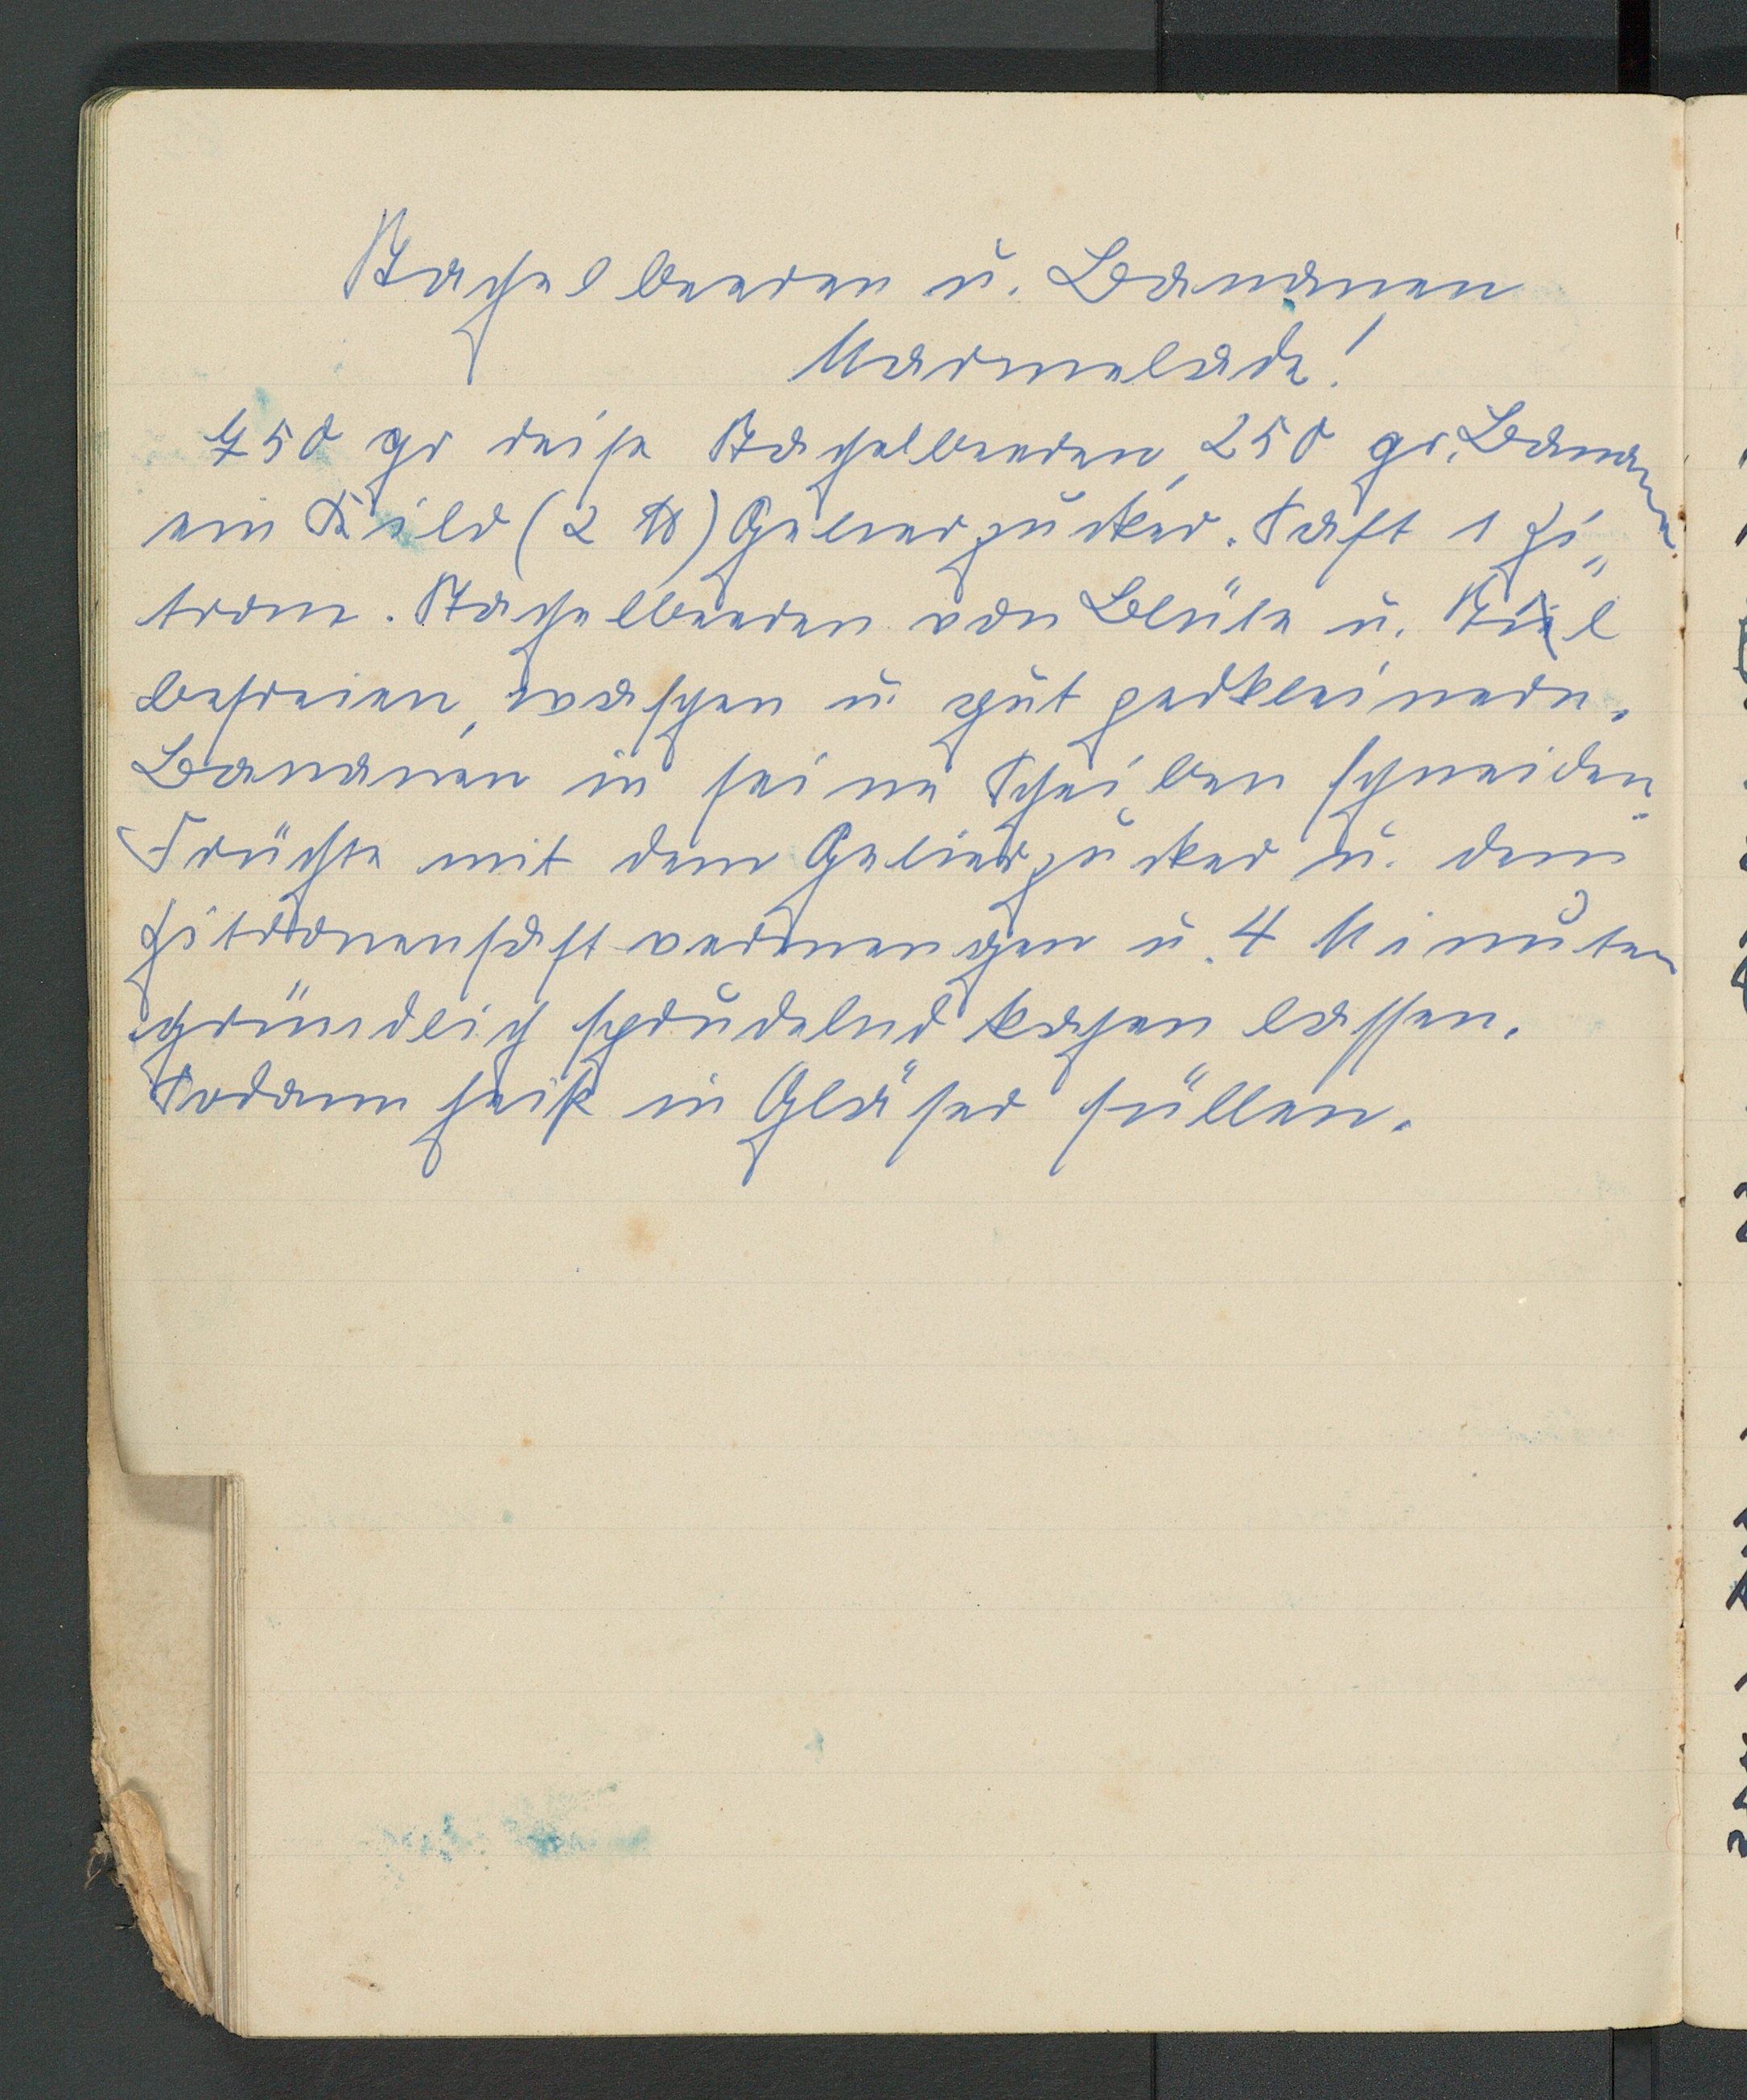 Stachelbeeren u. Bananen
Marmelade!
750 gr reife Stachelbeeren, 250 gr. Bananen
ein Kilo (2 ℔) Gelierzucker. Saft 1 Zi„
trone. Stachelbeeren von Blüte u. Stiel
befreien, waschen u. gut zerkleinern.
Bananen in feine Scheiben schneiden.
Früchte mit dem Gelierzucker u. dem
Zitronensaft vermengen u. 4 Minuten
gründlich sprudelnd kochen lassen.
Sodann heiß in Gläser füllen.